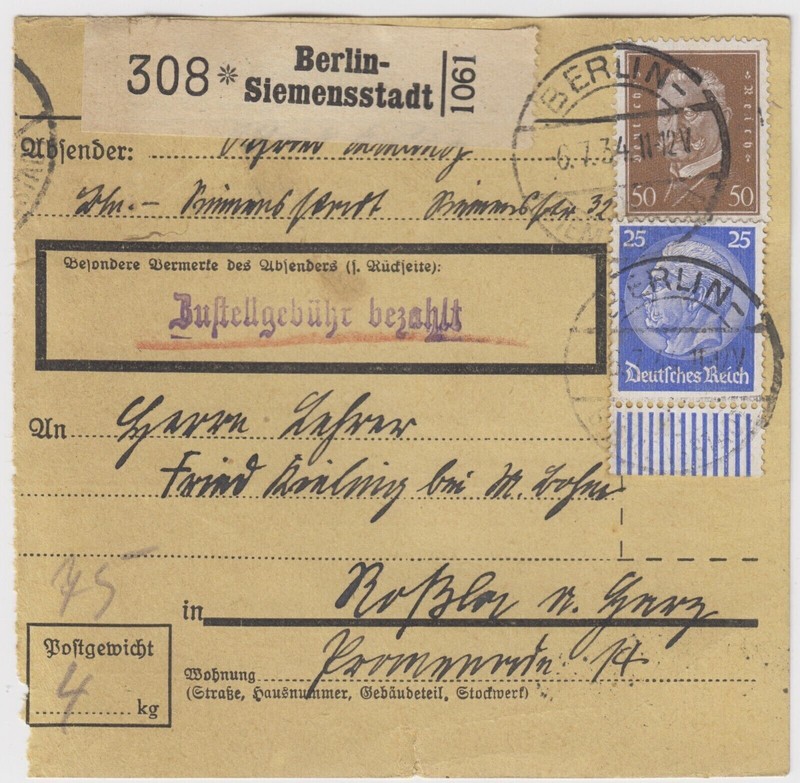 308* Berlin-Siemensstadt 1061
BERLIN-
6.7.34.11-12V
Deutsches Reich
50 50
Absender:
Bln.- Siemensstadt Siemensstr 32
25 25
BERLIN-
Deutsches Reich
Besondere Vermerke des Absenders (s. Rückseite):
Zustellgebühr bezahlt
An Herrn Lehrer
Fried Kieling bei M. Bohm
75
in Roßla a. Harz
Postgewicht
4 kg
Wohnung Promenade 14
(Straße, Hausnummer, Gebäudeteil, Stockwerk)